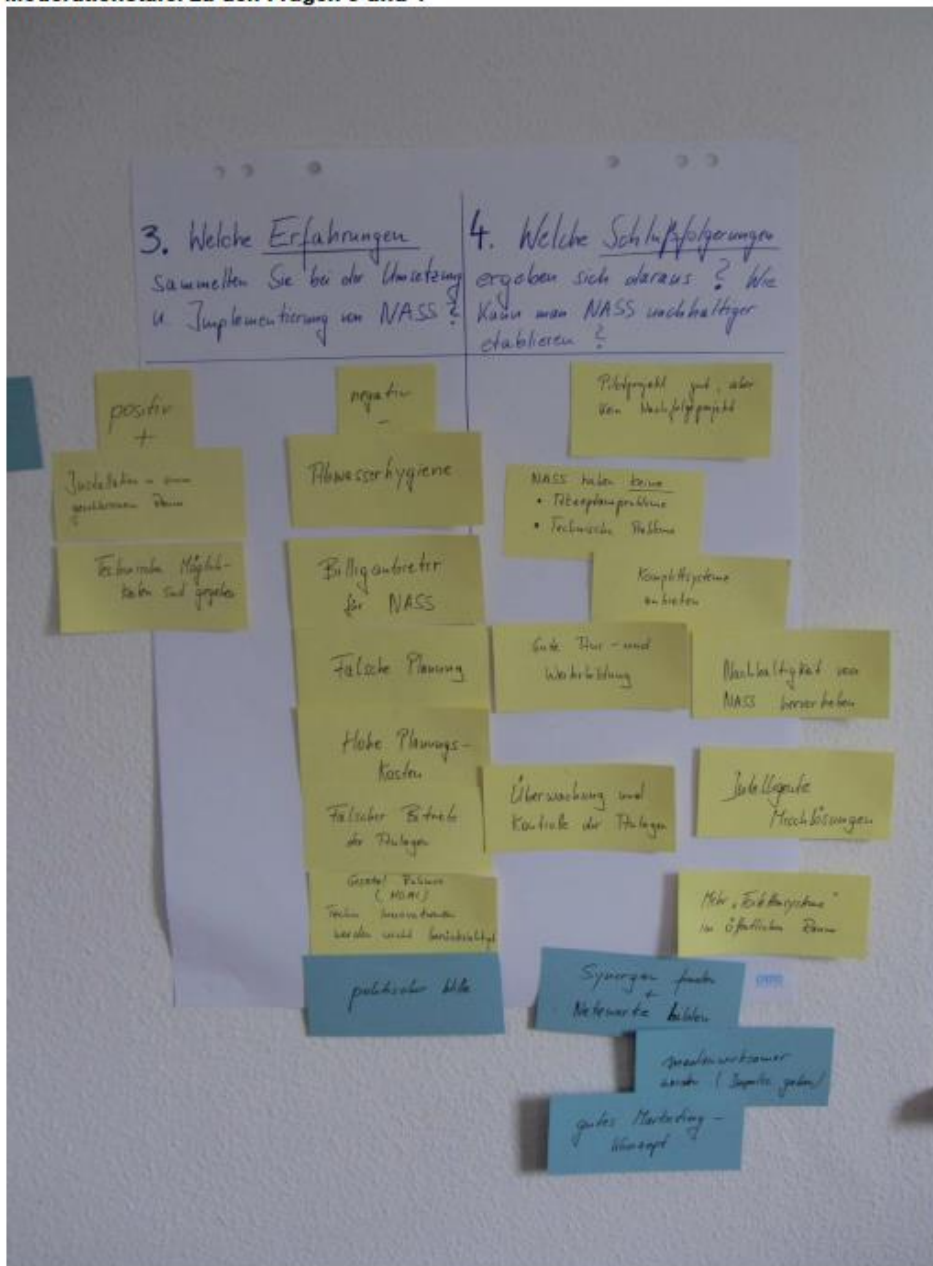 Moderationstafel zu den Fragen 3 und 4
3. Welche Erfahrungen
sammelten Sie bei der Umsetzung
u. Implementierung von NASS?
4. Welche Schlußfolgerungen
ergeben sich daraus? Wie
kann man NASS nachhaltiger
etablieren?
positiv
+
Installation in einem
geschlossenen Raum
Technische Möglich-
keiten sind gegeben
negativ
-
Abwasserhygiene
Billiganbieter
für NASS
Falsche Planung
Hohe Planungs-
Kosten
Falscher Betrieb
der Anlagen
(HOAI)
Techn. Innovationen
werden nicht berücksichtigt
politischer Wille
Pilotprojekt gut, aber
kein Nachfolgeprojekt
NASS haben keine
• Akzeptanzprobleme
• Technische Probleme
Komplettsysteme
anbieten
Gute Aus- und
Weiterbildung
Nachhaltigkeit von
NASS hervorheben
Überwachung und
Kontrolle der Anlagen
Intelligente
Mischlösungen
Mehr „Toilettensysteme"
im öffentlichen Raum
Synergien finden
+
Netzwerke bilden
medienwirksamer
werden (Impulse geben)
gutes Marketing-
Konzept